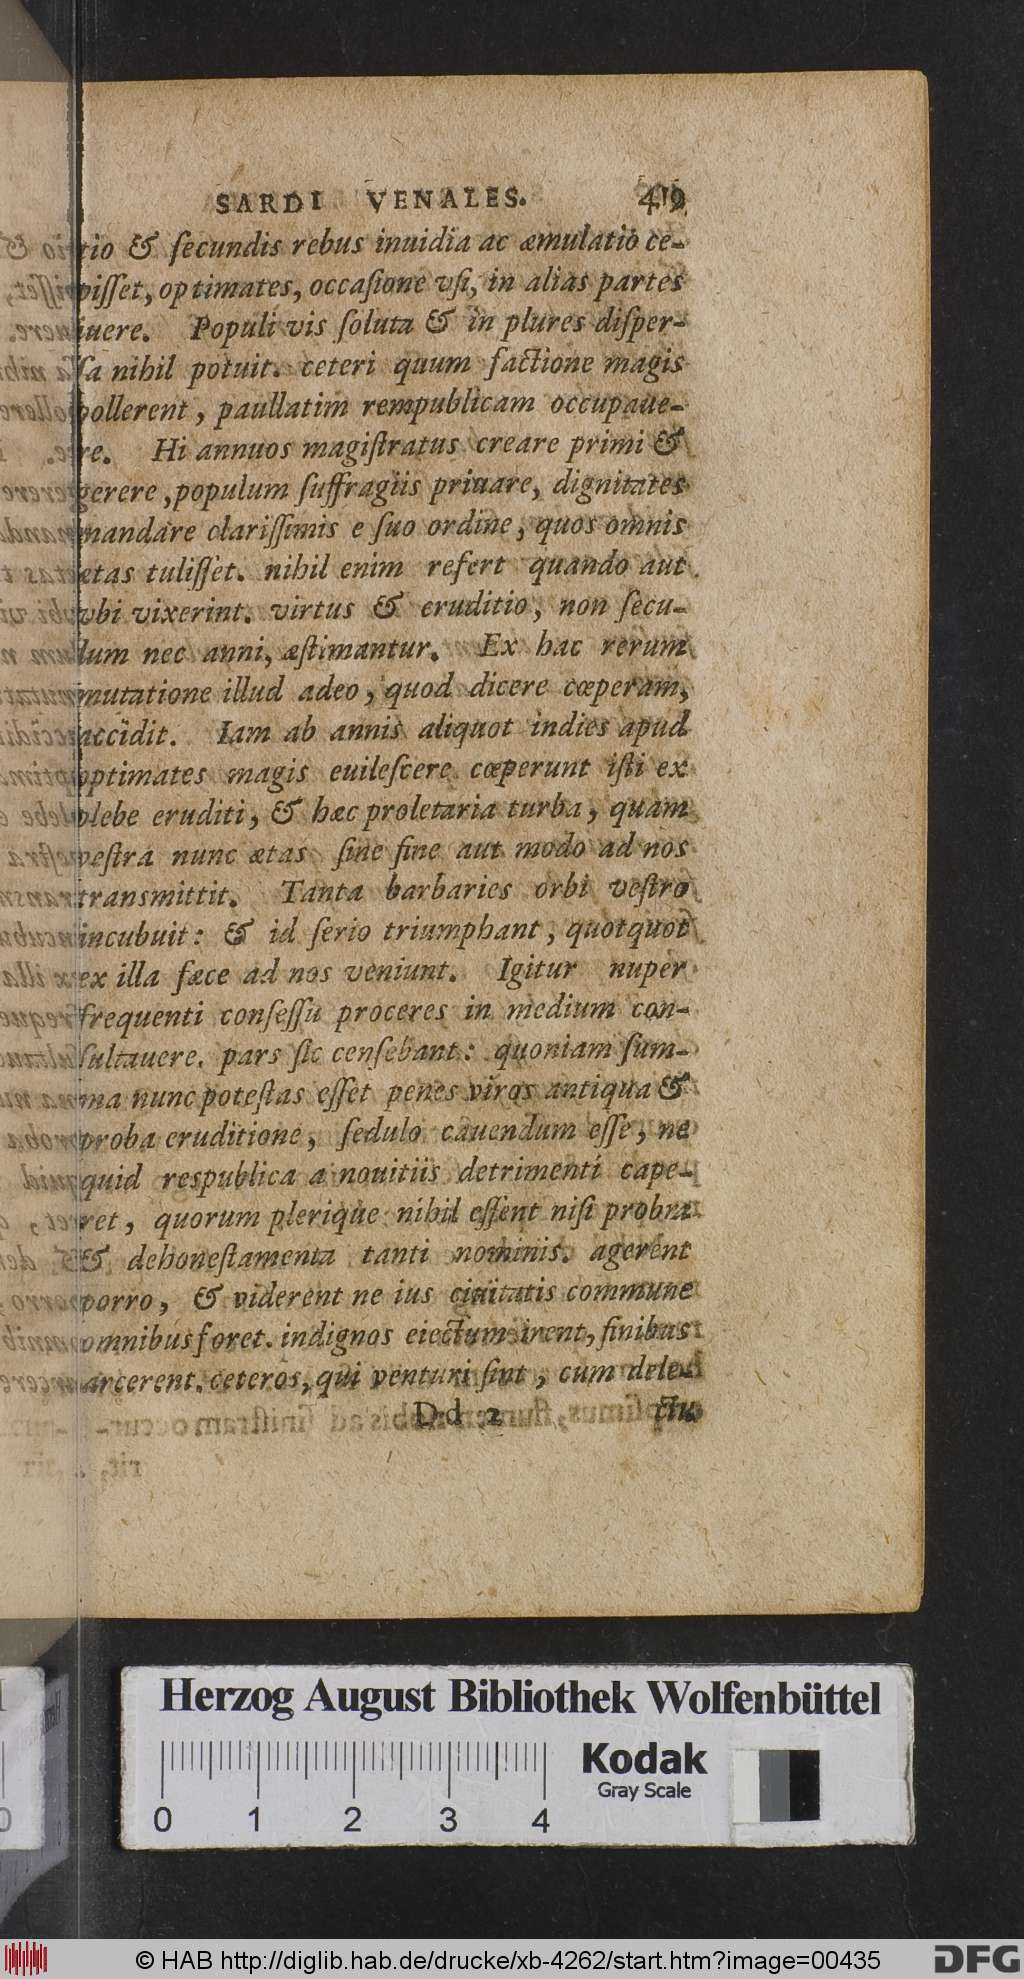 SARDI VENALES. 419
tio & ſecundis rebus inuidia ac æmulatio ce-
piſſet, optimates, occaſione vſi, in alias partes
iuere. Populi vis ſoluta & in plures diſper-
ſa nihil potuit. ceteri quum factione magis
pollerent, paullatim rempublicam occupaue-
re. Hi annuos magiſtratus creare primi &
gerere, populum ſuffragiis priuare, dignitates
mandare clariſſimis e ſuo ordine, quos omnis
ætas tuliſſet. nihil enim refert quando aut
vbi vixerint. virtus & eruditio, non ſecu-
lum nec anni, æſtimantur. Ex hac rerum
mutatione illud adeo, quod dicere cœperam,
accidit. Iam ab annis aliquot indies apud
optimates magis euileſcere cœperunt iſti ex
plebe eruditi, & hæc proletaria turba, quam
veſtra nunc ætas ſine fine aut modo ad nos
transmittit. Tanta barbaries orbi veſtro
incubuit: & id ſerio triumphant, quotquot
ex illa fæce ad nos veniunt. Igitur nuper
frequenti conſeſſu proceres in medium con-
ſultauere. pars ſic cenſebant: quoniam ſum-
ma nunc poteſtas eſſet penes viros antiqua &
proba eruditione, ſedulo cauendum eſſe, ne
quid respublica a nouitiis detrimenti cape-
ret, quorum plerique nihil eſſent niſi probra
& dehoneſtamenta tanti nominis. agerent
porro, & viderent ne ius ciuitatis commune
omnibus foret. indignos eiectum irent, finibus
arcerent. ceteros, qui venturi ſint, cum dele-
Dd 2 ctu
Herzog August Bibliothek Wolfenbüttel
Kodak
Gray Scale
0 1 2 3 4
© HAB http://diglib.hab.de/drucke/xb-4262/start.htm?image=00435 DFG